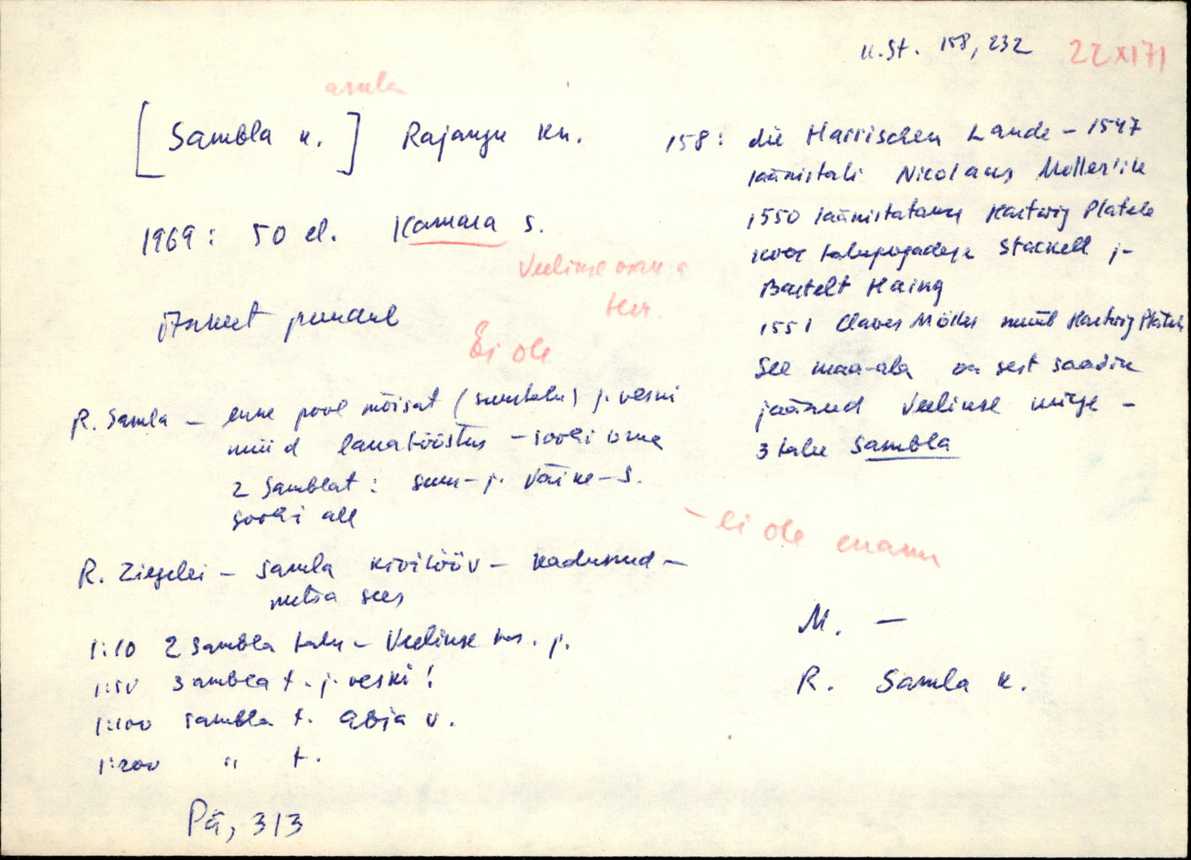 K.St. 158, 232 22 XI 71
asula
[Sambla k.] Rajangu kn.
1969: 50 el. Kamara s.
Veelikse
Ei ole
R. Samla – enne pool mõisat (suurtalu) j. veski
nüüd lanatööstus – soohi
2 Samblat: suur- j. väike-S.
soohi all
– ei ole enamu
R. Ziegelei – samla kivilööv – kadunud –
metsa sees
1:10 2 Sambla talu – Veelikse j.
1:50 3 ambla t. j. veski!
1:100 sambla t. Abja v.
1:200 " t.
Pä, 313
158: die Harrischen Lande – 1547
läänistati Nicolaus Möller'ile
1550 läänistatakse Hartwig Platele
koos talupogadega Stackell j-
Bartelt Haing
1551 Claves Möller müüb Hartwig
See maa-ala on sest saadik
jäänud Veelikse külge –
3 talu Sambla
M. –
R. Samla k.